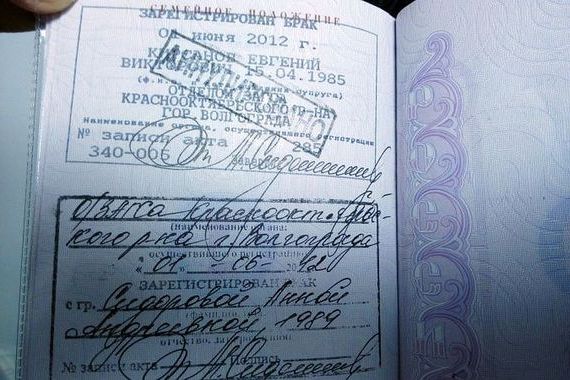 СЕМЕЙНОЕ ПОЛОЖЕНИЕ
ЗАРЕГИСТРИРОВАН БРАК
01 июня 2012 г.
ЕВГЕНИЙ
15.04.1985
ОТДЕЛОМ
КРАСНООКТЯБРЬСКОГО Р-НА
ГОР. ВОЛГОГРАДА
Наименование органа, осуществившего регистрацию
№ записи акта 285
340-006
О/ЗАГСа Краснооктябрьс-
кого р-на г. Волгограда
(наименование органа,
осуществившего регистрацию)
"01" - 06 -
ЗАРЕГИСТРИРОВАН БРАК
с гр. Сидоровой Анной
Андреевной, 1989
отчество, дата рождения)
№ записи акта Подпись